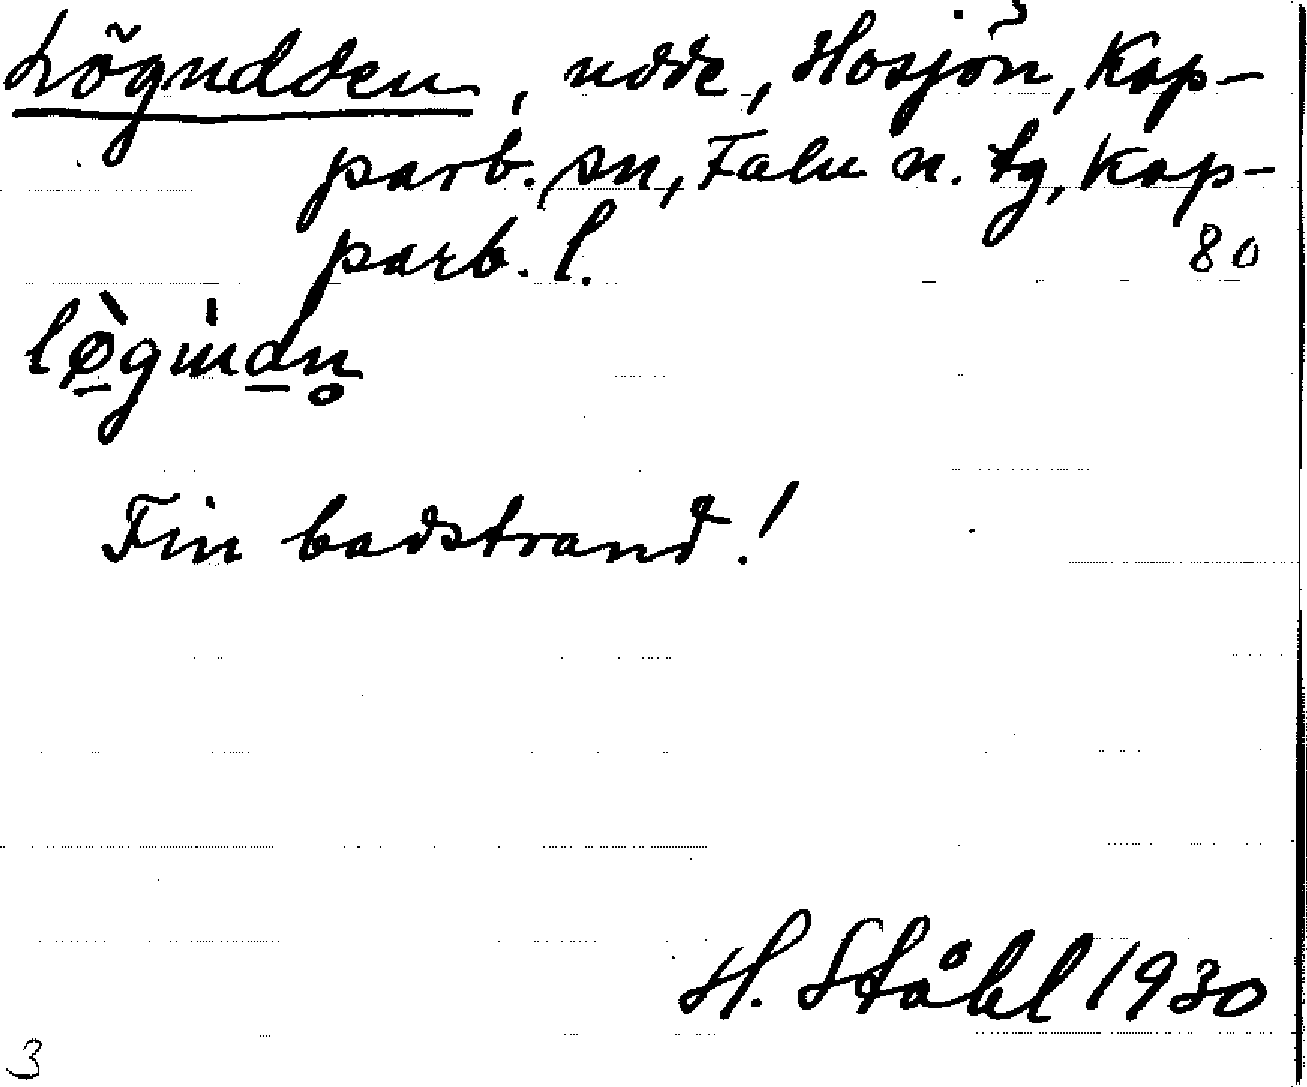 Lögudden, udde, Hosjön, Kop-
parb. sn, Falu n. tg, Kop-
parb. l.
80
Fin badstrand!
H. Ståhl 1930
3